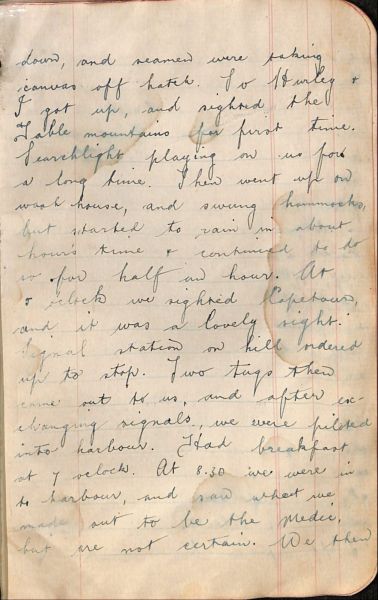 down, and seamen were taking
canvas off hatch. So Hurley &
I got up, and sighted the
Table mountains for first time.
Searchlight playing on us for
a long time. Then went up on
wash house, and swung hammocks,
but started to rain in about
hours time & continued to do
so for half an hour. At
o'clock we sighted Capetown,
and it was a lovely sight.
Signal station on hill ordered
us to stop. Two tugs then
came out to us, and after ex-
changing signals, we were piloted
into harbour. Had breakfast
at 7 oclock. At 8.30 we were in
to harbour, and saw what we
made out to be the Medic,
but are not certain. We then